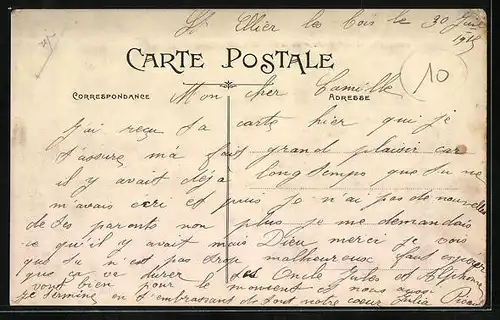 St Ellier les bois le 30 Juin
1915
CARTE POSTALE
CORRESPONDANCE
ADRESSE
10
Mon cher Camille
j'ai reçu ta carte hier qui je
t'assure m'a fait grand plaisir car
il y avait déjà longtemps que tu ne
m'avais ecri et puis je n'ai pas de nouvelles
de tes parents non plus je me demandais
ce qu'il y avait mais Dieu merci je vois
que tu n'est pas trop malheureux faut espérer
que ca va durer Oncle Jules et Alphonse
vont bien pour le moment et nous aussi
je termine en t'embrassant de tout notre coeur Julia